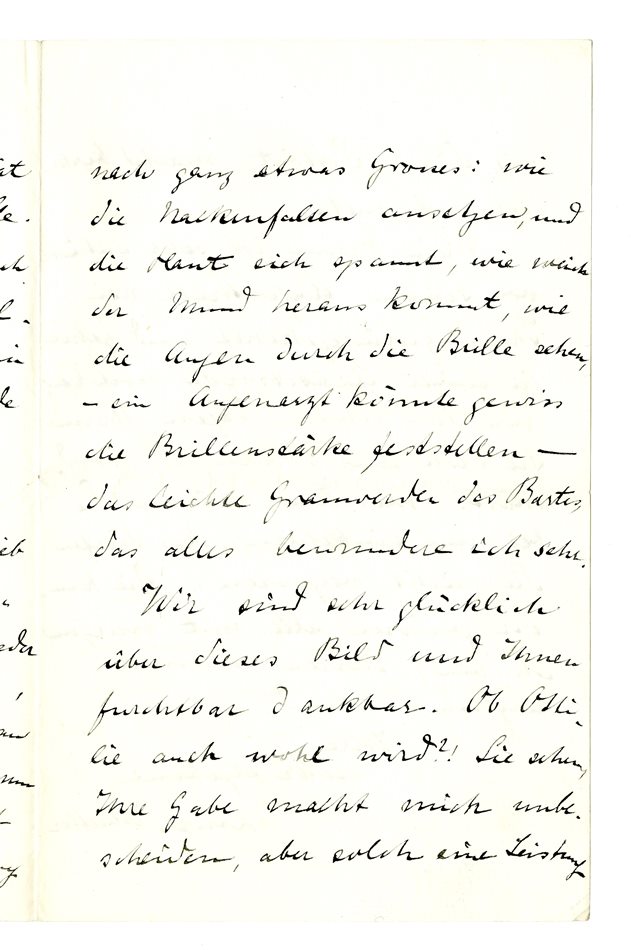 noch ganz etwas Grosses: wie
die Nackenfalten ansetzen, und
die Haut sich spannt, wie weich
der Mund heraus kommt, wie
die Augen durch die Brille sehen,
– ein Augenarzt könnte gewiss
die Brillenstärke feststellen —
das leichte Grauwerden des Bartes,
das alles bewundere ich sehr.
Wir sind sehr glücklich
über dieses Bild und Ihnen
furchtbar dankbar. Ob Otti-
lie auch wohl wird?! Sie sehen,
Ihre Gabe macht mich unbe-
scheiden, aber solch eine Leistung